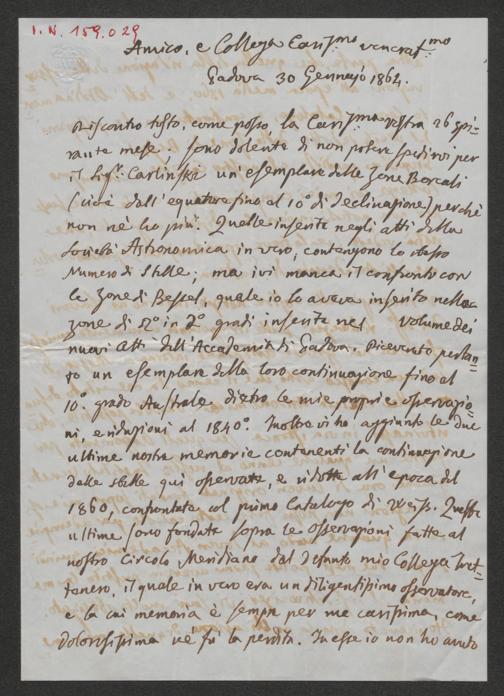 I.N. 159.029
Amico, e Collega Cariss.mo venerat.mo
Padova 30 Gennajo 1864.
Riscontro tosto, come posso, la Cariss.ma vostra 26 spi-
rante mese. Sono dolente di non potere spedirvi per
il Sig.r Carlinski un'esemplare delle Zone Boreali
(cioè dall'equatore fino al 10° di declinazione) perchè
non nè ho più. Quelle inserite negli atti della
Società Astronomica in vero, contengono lo stesso
Numero di Stelle; ma ivi manca il confronto con
le Zone di Bessel, quale io lo aveva inserito nella
zona di in 2° gradi inserite nel volume dei
nuovi Atti dell'Accademia di Padova. Riceverete pertan-
to un esemplare della loro continuazione fino al
10° grado Australe dietro le mie proprie osservazio-
ni, e riduzioni al 1840°. Inoltre vi ho aggiunto le due
ultime nostre memorie contenenti la continuazione
delle stelle qui osservate, e ridotte all'epoca del
1860, confrontate col primo Catalogo di Weiss. Queste
ultime sono fondate sopra le Osservazioni fatte al
nostro Circolo Meridiano dal defunto mio Collega Tret-
tenero, il quale in vero era un diligentissimo osservatore,
e la cui memoria è sempre per me carissima, come
dolorosissima nè fù la perdita. In esse io non ho avuto